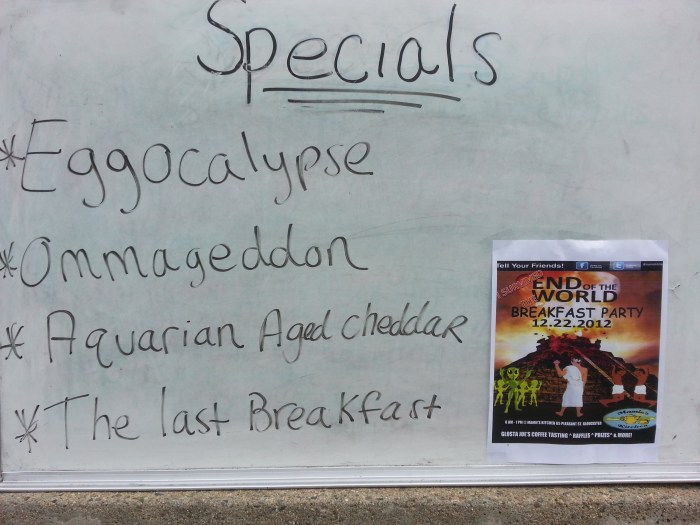 Specials
*Eggocalypse
*Ommageddon
* Aquarian Aged cheddar
*The last Breakfast
Tell Your Friends!
END OF THE
WORLD
BREAKFAST PARTY
12.22.2012
GLOSTA JOE'S COFFEE TASTING * RAFFLES * PRIZES* & MORE!